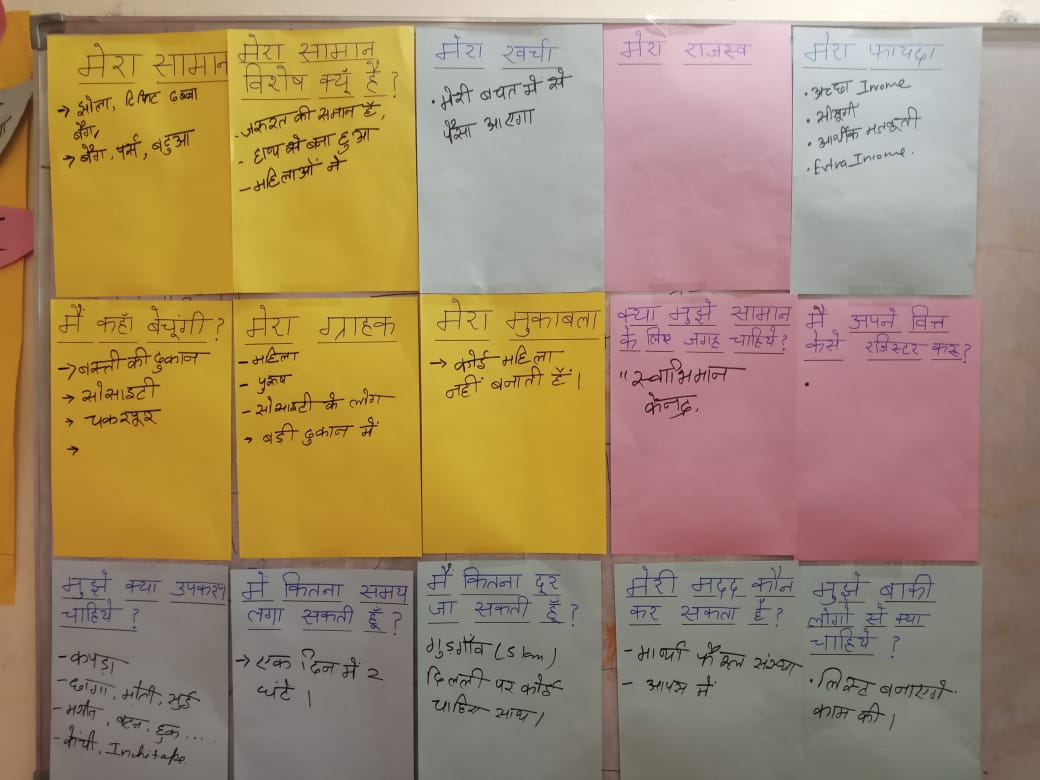 मेरा सामान
→ झोला, टिफिट डब्बा
बैग,
→ बैग, पर्स, बटुआ
मेरा सामान
विशेष क्यूँ है ?
- जरुरत की समान है,
- हाथ से बना हुआ
- महिलाओं ने
मेरा खर्चा
• मेरी बचत में से
पैसा आएगा
मेरा राजस्व
मेरा फायदा
• अच्छा Income
• आर्थीक मजबूती
• Extra Income.
मैं कहाँ बेचूंगी ?
→ बस्ती की दुकान
→ सोसाइटी
→ चकरपूर
→
मेरा ग्राहक
- महिला
- पुरूष
- सोसाइटी के लोग
→ बडी दुकान में
मेरा मुकाबला
→ कोई महिला
नहीं बनाती हैं।
क्या मुझे सामान
के लिए जगह चाहिये?
" स्वाभिमान
केनद्र,
मैं अपने वित्त
केसे रजिस्टर करू?
•
मुझे क्या उपकरण
चाहिये ?
- कपड़ा
- धागा, मोती, सुई
- मशीन, बटन, हुक ....
- कैंची, Inchitape
मैं कितना समय
लगा सकती हूँ ?
→ एक दिन में 2
घंटे।
मैं कितना दूर
जा सकती हूँ ?
गुड़गाँव (5 km)
दिलली पर कोई
चाहिए साथ।
मेरी मदद कौन
कर सकता है ?
- मार्था फैरल संस्था
- आपस में
मुझे बाकी
लोगो से क्या
चाहिये ?
• लिस्ट बनाएगे
काम की।